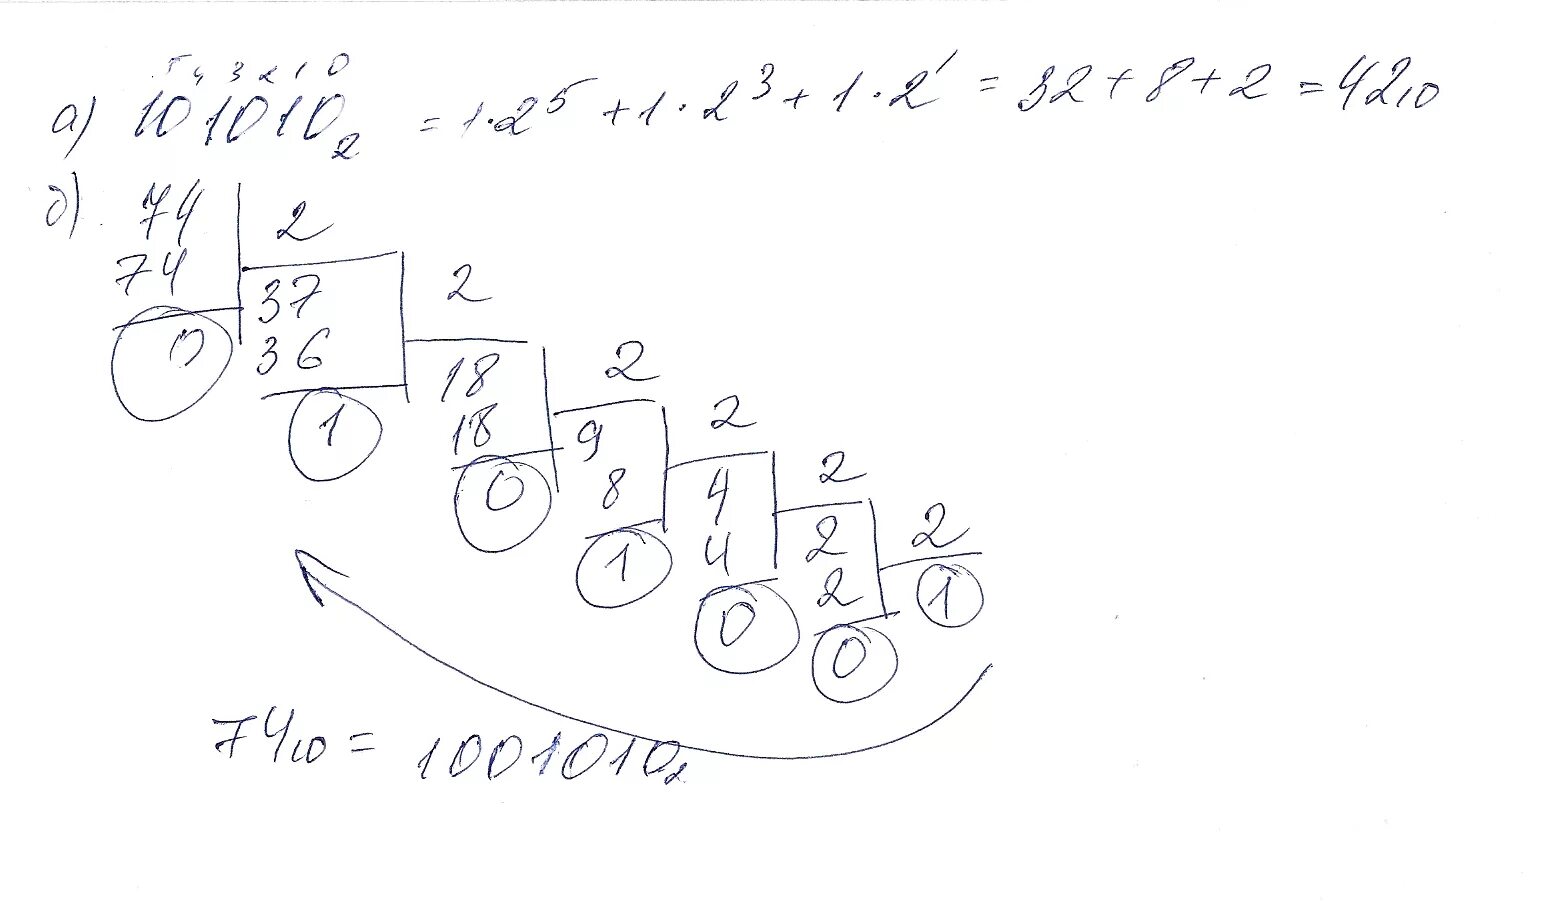 5 4 3 2 1 0
а) 101010₂ = 1·2⁵ + 1·2³ + 1·2¹ = 32 + 8 + 2 = 42₁₀
б) 74 2
74 37 2
0 36 18 2
1 18 9 2
0 8 4 2
1 4 2 2
0 2 1
0
74₁₀ = 1001010₂